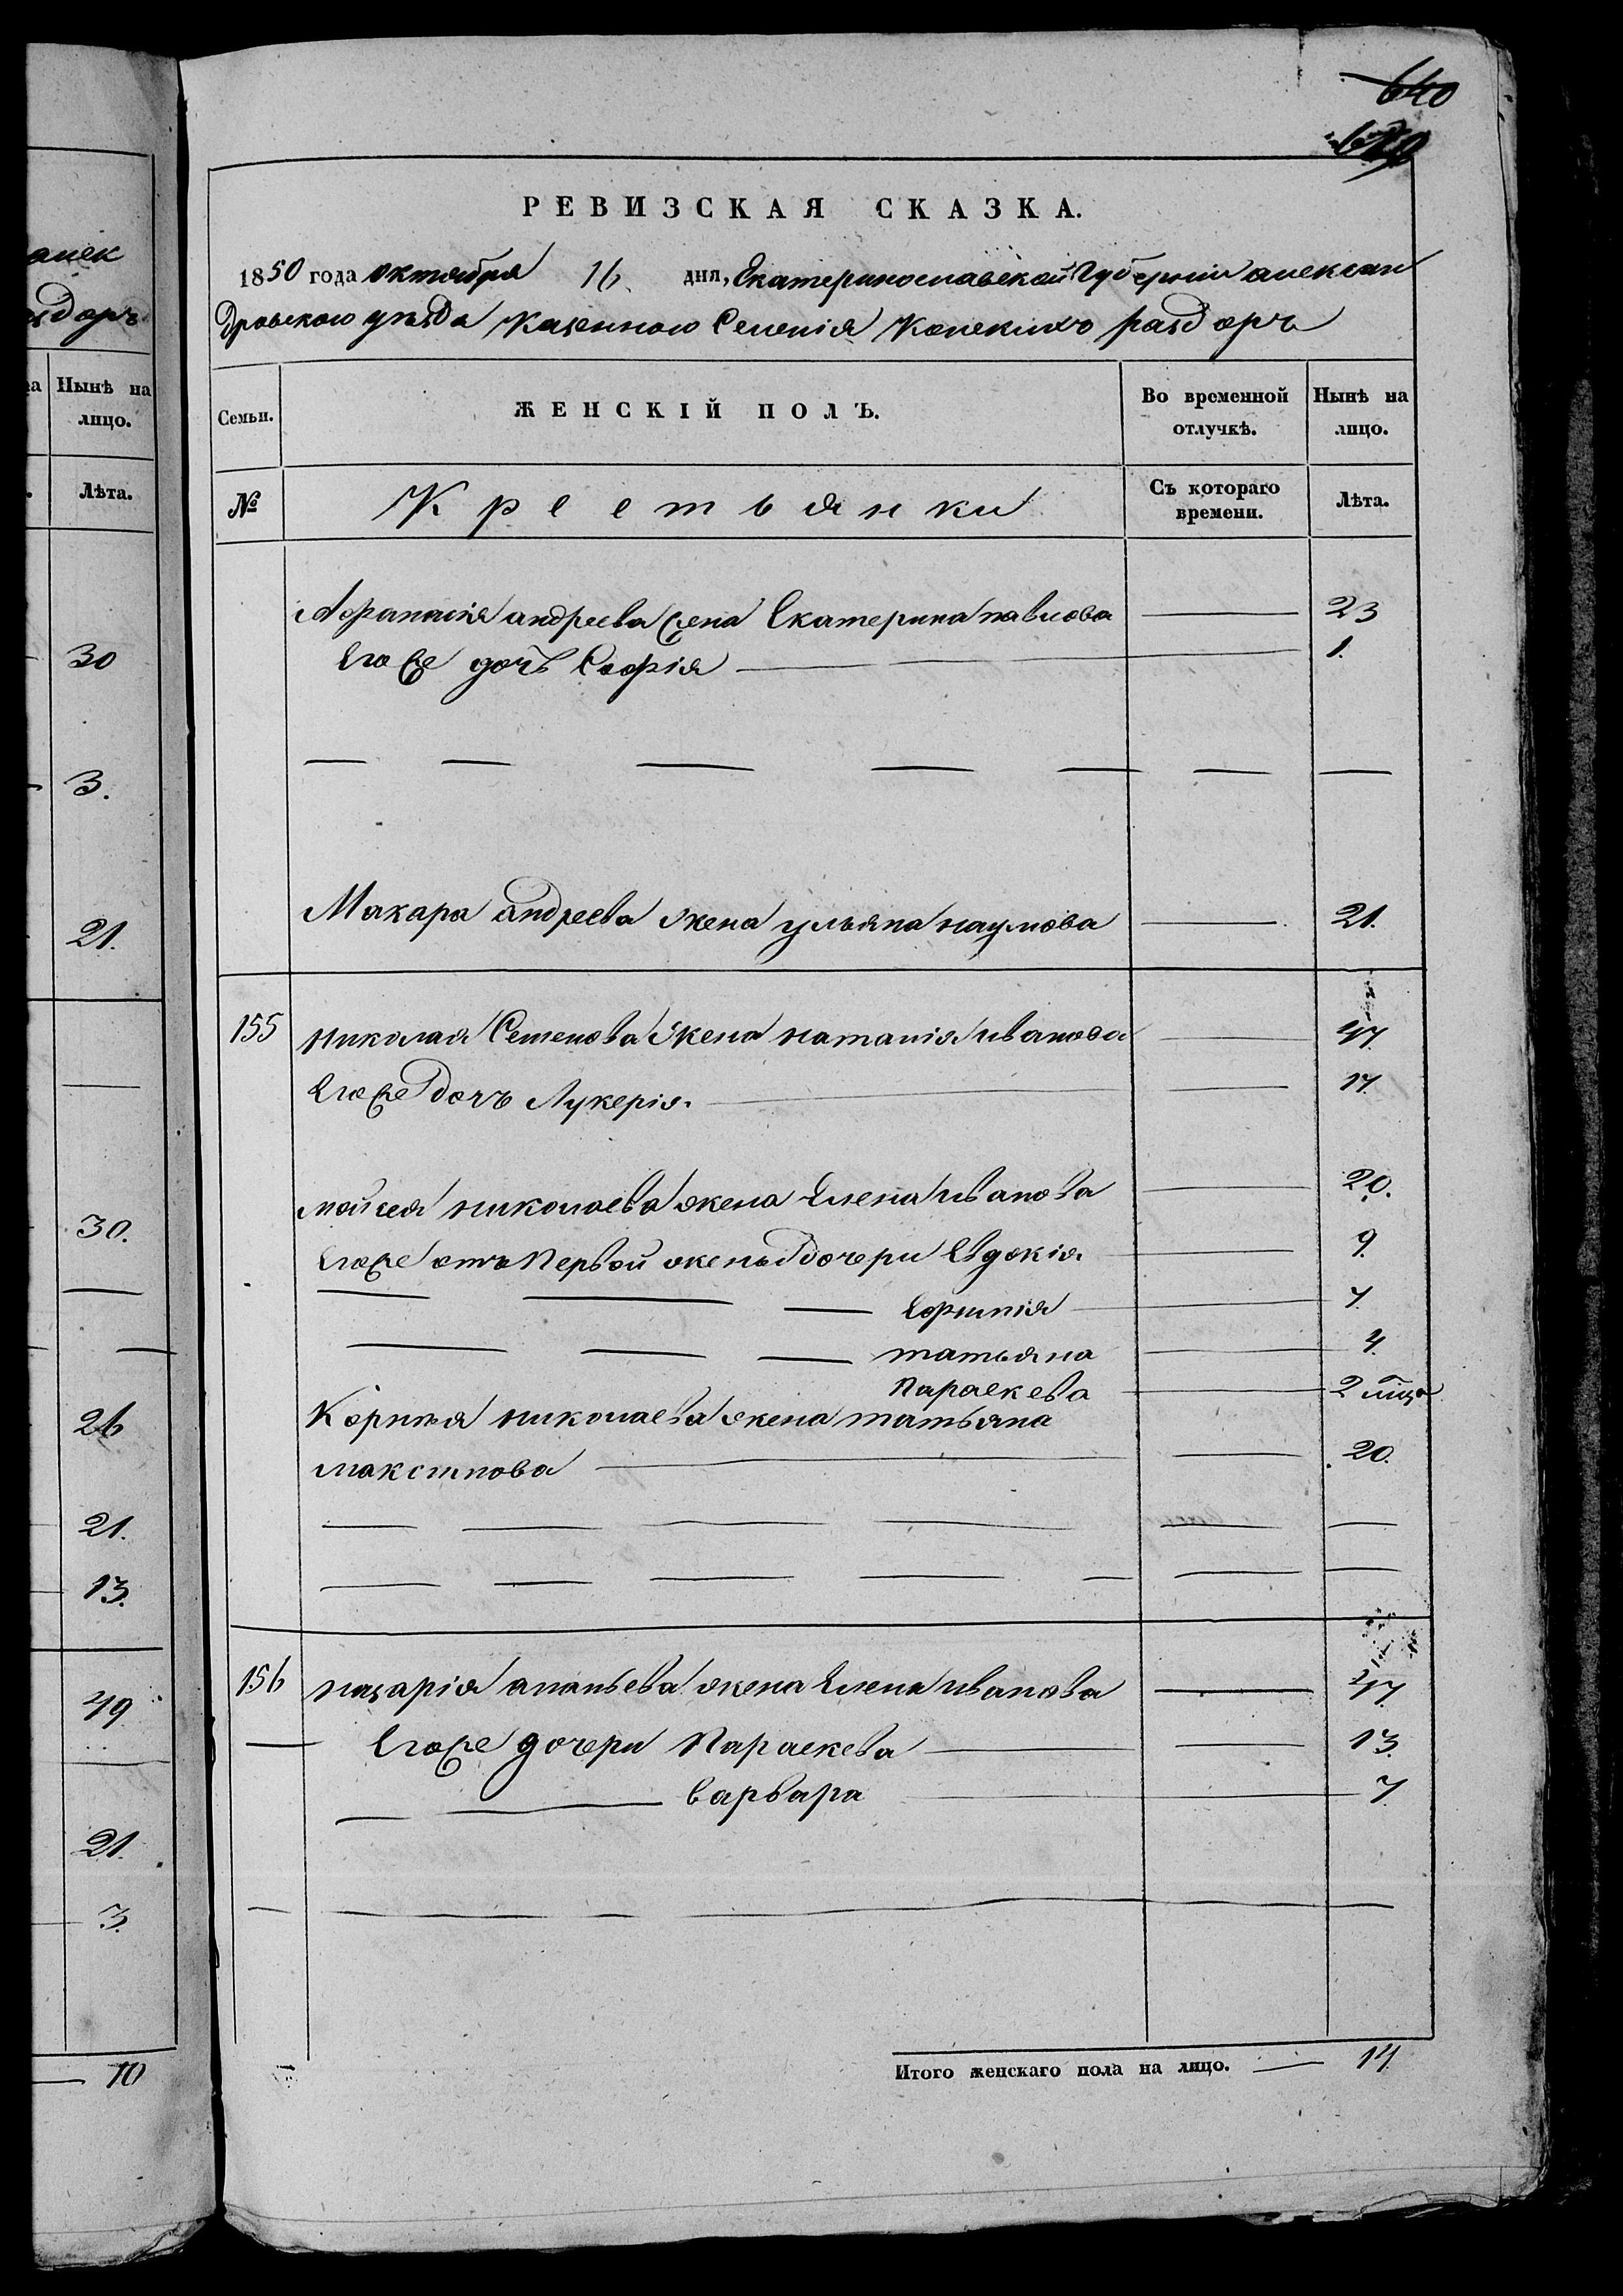 640
РЕВИЗСКАЯ СКАЗКА.
1850 года октября 16 дня, Екатеринославской Губернiи алексан
дровского уѣзда Казенного Селенiя Конскихъ раздоръ
Семьи. ЖЕНСКIЙ ПОЛЪ. Во временной отлучкѣ. Нынѣ на лицо.
№ Крестьянки Съ котораго времени. Лѣта.
Афанасiя андреева жена Екатерина павлова 23
Его же дочь Софiя 1.
Макара андреева жена ульяна наумова 21.
155 николая Семенова жена наталiя иванова 47.
Его же дочь Лукерiя. 17.
мойсея николаева жена Елена иванова 20.
Его же отъ Первой жены дочери Евдокiя 9.
Ефимiя 7.
татьяна 4.
Параскева 2 мца
Корнея николаева жена татьяна
максимова 20.
156 назарiя ананьева жена Елена иванова 47.
Его же дочери Параскева 13.
варвара 7.
Итого женскаго пола на лицо. 14.
анск
здоръ
ка Нынѣ на
лицо.
Лѣта.
30
3.
21.
30.
26
21.
13.
49
21.
3.
10